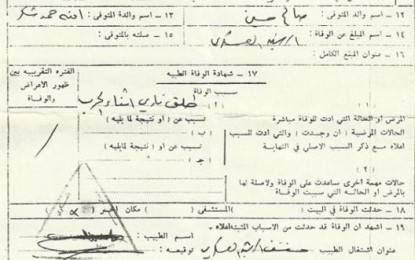 ١٢ - اسم والد المتوفى: صالح حسين ١٣ - اسم والدة المتوفى: امنه حمد شكر
١٤ - اسم المبلغ عن الوفاة: ١٥ - صلته بالمتوفى:
١٦ - عنوان المبلغ الكامل:
١٧ - شهادة الوفاة الطبيه
الفتره التقريبيه بين ظهور الاعراض والوفاة
سبب الوفاة
(١)
المرض او الحالة التي ادت للوفاة مباشرة
أ) طلق ناري اثناء الحرب
الحالات المرضية (ان وجدت) والتي ادت للسبب اعلاه مع ذكر السبب الاصلي في النهاية
تسبب عن (او نتيجة لما يليه)
ب)
تسبب عن (او نتيجة لما يليه)
ج)
(٢)
حالات مهمة أخرى ساعدت على الوفاة ولاصلة لها بالمرض او بالحاله التي سببت الوفاة
١٨ - حدثت الوفاة في البيت ( ) المستشفى ( ) مكان اخر ( )
١٩ - اشهد ان الوفاة قد حدثت من الاسباب المثبته اعلاه
اسم الطبيب:
عنوان اشتغال الطبيب توقيعه: